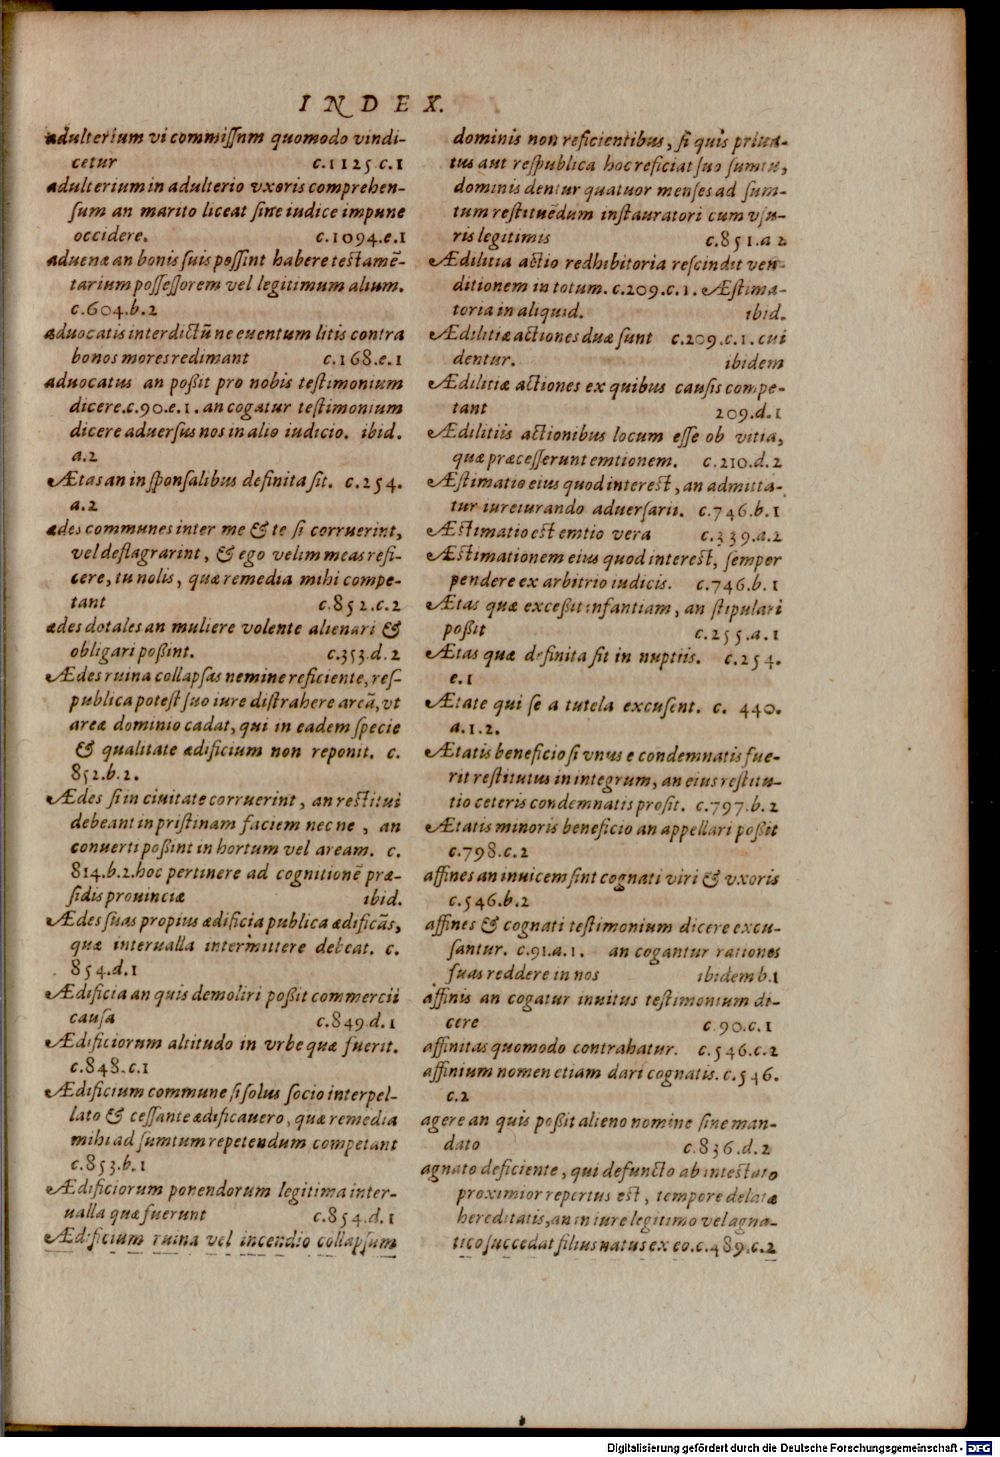 INDEX.
adulterium vi commissum quomodo vindi-
cetur c.1125.c.1
adulterium in adulterio vxoris comprehen-
sum an marito liceat sine iudice impune
occidere. c.1094.e.1
aduenæ an bonis suis possint habere testamē-
tarium possessorem vel legitimum alium.
c.604.b.2
aduocatis interdictū ne euentum litis contra
bonos mores redimant c.168.e.1
aduocatus an poßit pro nobis testimonium
dicere.c.90.e.1. an cogatur testimonium
dicere aduersus nos in alio iudicio. ibid.
a.2
Ætas an in sponsalibus definita sit. c.254.
a.2
ædes communes inter me & te si corruerint,
vel deflagrarint, & ego velim meas refi-
cere, tu nolis, quæ remedia mihi compe-
tant c.852.c.2
ædes dotales an muliere volente alienari &
obligari poßint. c.353.d.2
Ædes ruina collapsas nemine reficiente, res-
publica potest suo iure distrahere arcā, vt
areæ dominio cadat, qui in eadem specie
& qualitate ædificium non reponit. c.
852.b.2.
Ædes si in ciuitate corruerint, an restitui
debeant in pristinam faciem nec ne, an
conuerti poßint in hortum vel aream. c.
814.b.2.hoc pertinere ad cognitionē præ-
sidis prouinciæ ibid.
Ædes suas propius ædificia publica ædificās,
quæ interualla intermittere debeat. c.
854.d.1
Ædificia an quis demoliri poßit commercii
causa c.849.d.1
Ædificiorum altitudo in vrbe quæ fuerit.
c.848.c.1
Ædificium commune si solus socio interpel-
lato & cessante ædificauero, quæ remedia
mihi ad sumtum repetendum competant
c.853.b.1
Ædificiorum ponendorum legitima inter-
ualla quæ fuerunt c.854.d.1
Ædificium ruina vel incendio collapsum
dominis non reficientibus, si quis priua-
tus aut respublica hoc reficiat suo sumtu,
dominis dentur quatuor menses ad sum-
tum restituēdum instauratori cum vsu-
ris legitimis c.851.a 2
Ædilitia actio redhibitoria rescindit ven-
ditionem in totum. c.209.c.1. Æstima-
toria in aliquid. ibid.
Ædilitiæ actiones duæ sunt c.209.c.1.cui
dentur. ibidem
Ædilitiæ actiones ex quibus causis compe-
tant 209.d.1
Ædilitiis actionibus locum esse ob vitia,
quæ præcesserunt emtionem. c.210.d.2
Æstimatio eius quod interest, an admitta-
tur iureiurando aduersarii. c.746.b.1
Æstimatio est emtio vera c.339.a.2
Æstimationem eius quod interest, semper
pendere ex arbitrio iudicis. c.746.b.1
Ætas quæ exceßit infantiam, an stipulari
poßit c.255.a.1
Ætas quæ definita sit in nuptiis. c.254.
e.1
Ætate qui se a tutela excusent. c. 440.
a.1.2.
Ætatis beneficio si vnus e condemnatis fue-
rit restitutus in integrum, an eius restitu-
tio ceteris condemnatis prosit. c.797.b.2
Ætatis minoris beneficio an appellari poßit
c.798.c.2
affines an inuicem sint cognati viri & vxoris
c.546.b.2
affines & cognati testimonium dicere excu-
santur. c.91.a.1. an cogantur rationes
suas reddere in nos ibidem b.1
affinis an cogatur inuitus testimonium di-
cere c.90.c.1
affinitas quomodo contrahatur. c.546.c.2
affinium nomen etiam dari cognatis.c.546.
c.2
agere an quis poßit alieno nomine sine man-
dato c.836.d.2
agnato deficiente, qui defuncto ab intestato
proximior repertus est, tempore delatæ
hereditatis, an in iure legitimo vel agna-
tico succedat filius natus ex eo.c.489.c.2
Digitalisierung gefördert durch die Deutsche Forschungsgemeinschaft - DFG